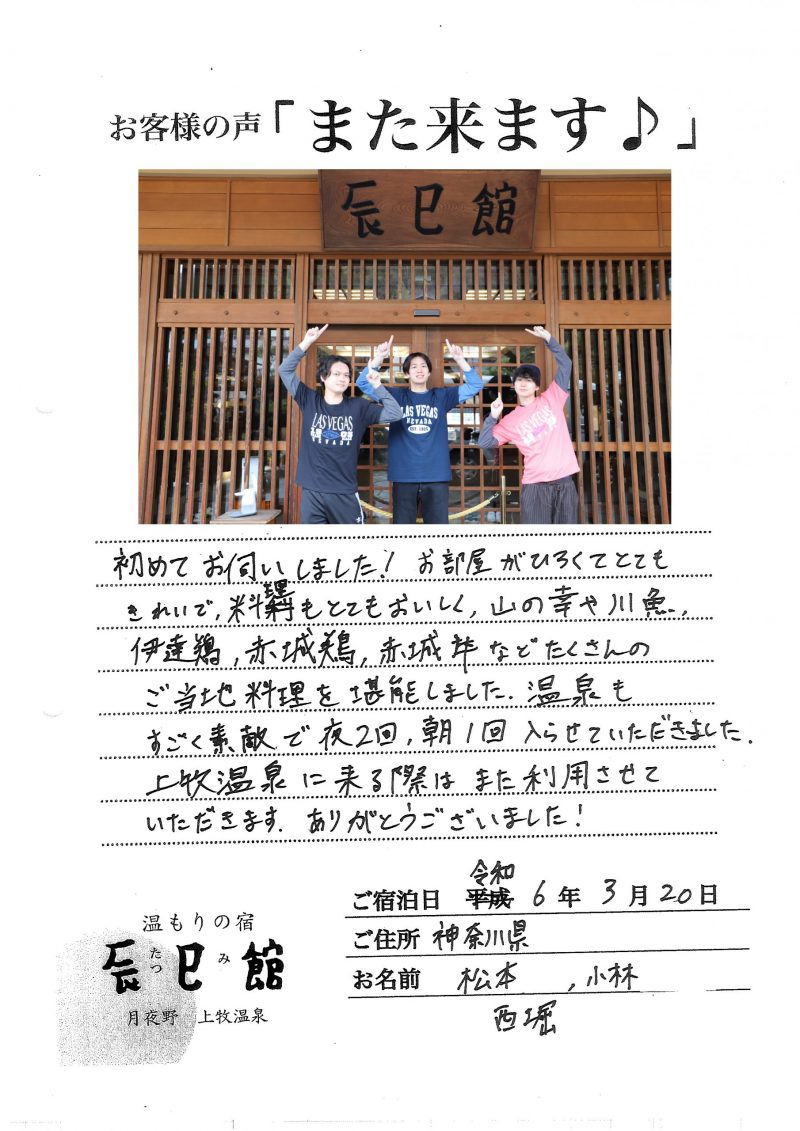 お客様の声「また来ます♪」
辰巳館
LAS VEGAS
NEVADA
LAS VEGAS
NEVADA
EST. 1905
LAS VEGAS
初めてお伺いしました！お部屋がひろくてとても
きれいで，料理もとてもおいしく，山の幸や川魚，
伊達鶏，赤城鶏，赤城牛などたくさんの
ご当地料理を堪能しました．温泉も
すごく素敵で夜2回，朝1回入らせていただきました．
上牧温泉に来る際はまた利用させて
いただきます．ありがとうございました！
令和
ご宿泊日 平成 6年 3月20日
ご住所 神奈川県
お名前 松本 ，小林
西堀
温もりの宿
辰巳館
たつ み
月夜野 上牧温泉